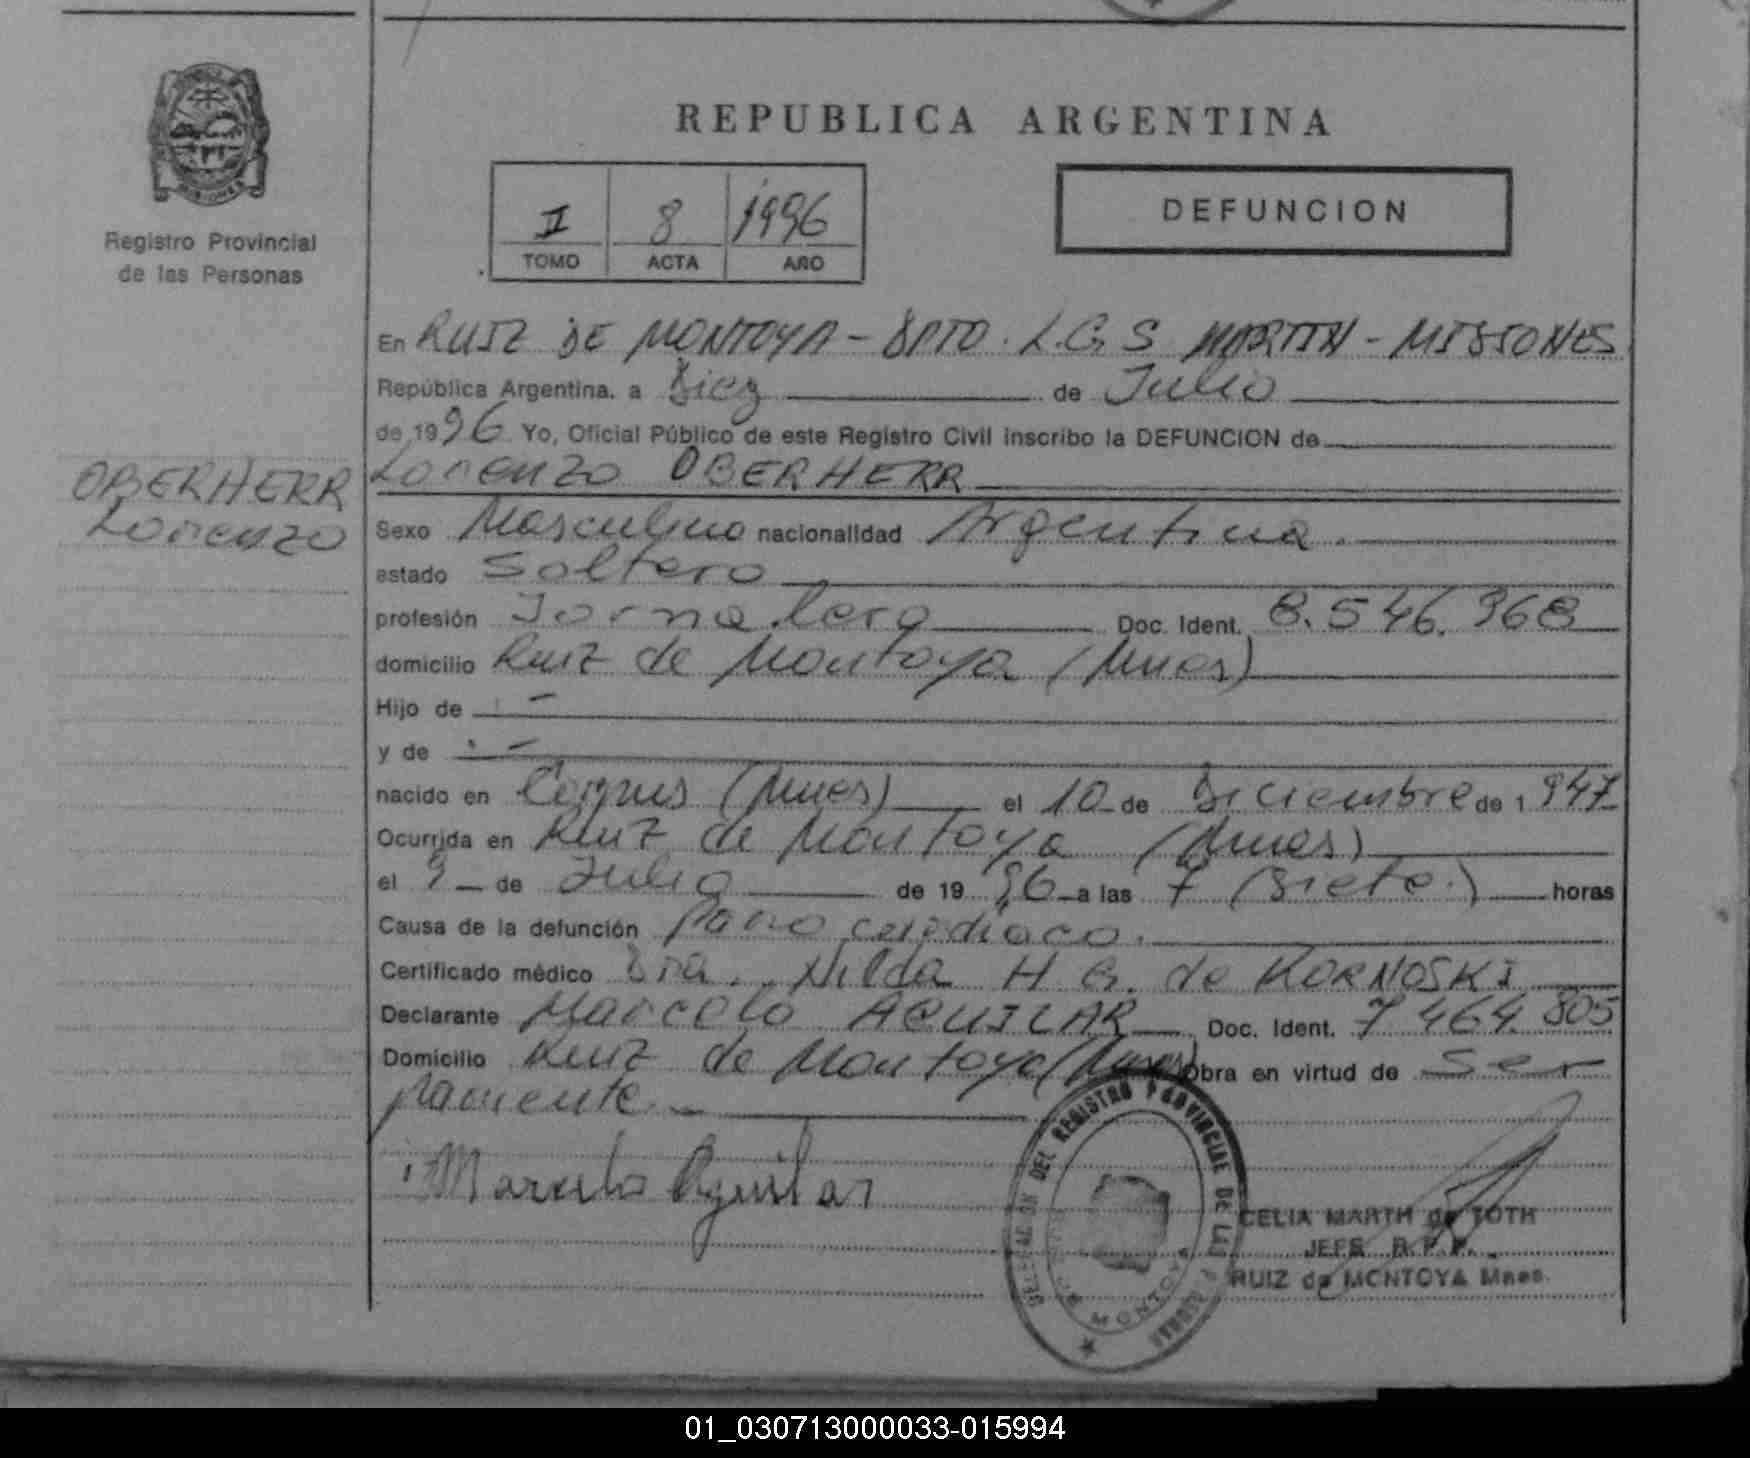 REPUBLICA ARGENTINA
II 8 1996
TOMO ACTA AÑO
DEFUNCION
Registro Provincial
de las Personas
OBERHERR
Lorenzo
En RUIZ DE MONTOYA - DPTO. L.G.S MARTIN - MISIONES
República Argentina, a Diez de Julio
de 1996 Yo, Oficial Público de este Registro Civil inscribo la DEFUNCION de
Lorenzo OBERHERR
Sexo Masculino nacionalidad Argentina.
estado Soltero
profesión Jornalero Doc. Ident. 8.546.968
domicilio Ruiz de Montoya (Mnes)
Hijo de -
y de -
nacido en Corpus (Mnes) el 10 de Diciembre de 1947
Ocurrida en Ruiz de Montoya (Mnes)
el 9 de Julio de 1996 a las 7 (Siete.) horas
Causa de la defunción Paro cardiaco.
Certificado médico Dra. Nilda H. G. de KORNOSKI
Declarante Marcelo AGUILAR Doc. Ident. 7 464.805
Domicilio Ruiz de Montoya (Mnes) Obra en virtud de ser
pariente.
Marcelo Aguilar
DELEGACION DEL REGISTRO PROVINCIAL DE LAS PERSONAS
DE MONTOYA
CELIA MARTH de TOTH
JEFE R.P.P.
RUIZ de MONTOYA Mnes.
01_030713000033-015994